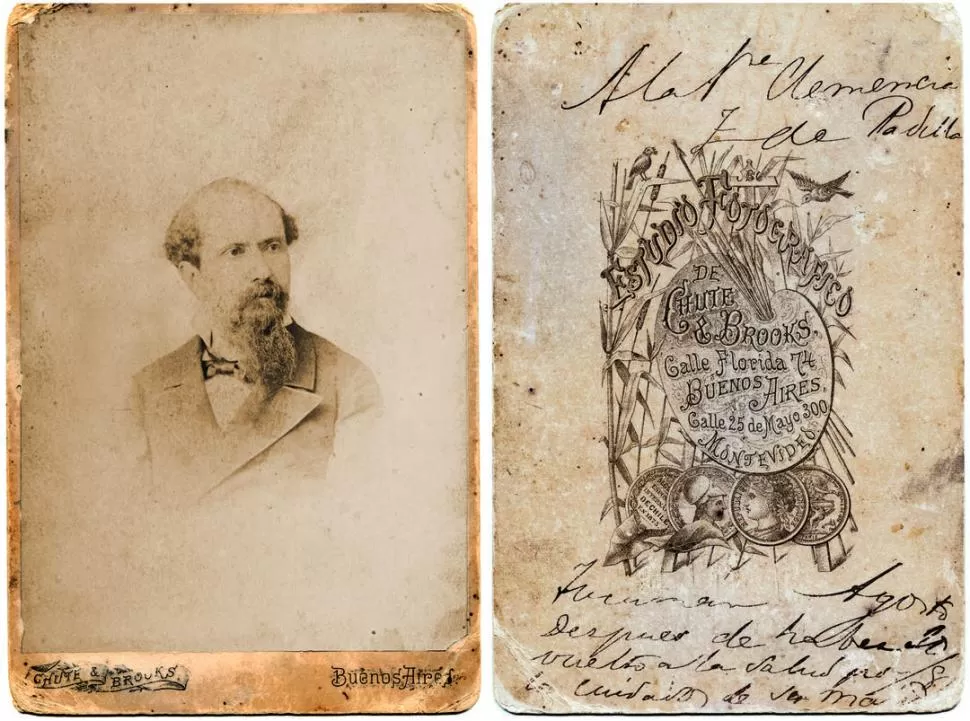 CHUTE & BROOKS
Buenos Aires
A la Sre Clemencia
Z de Padilla
ESTUDIO FOTOGRÁFICO
DE
CHUTE
& BROOKS.
Calle Florida 74
BUENOS AIRES.
Calle 25 de Mayo 300
MONTEVIDEO
DE CHILE
Tucuman Agosto
Despues de haber
vuelto a la salud por
cuidados de su má